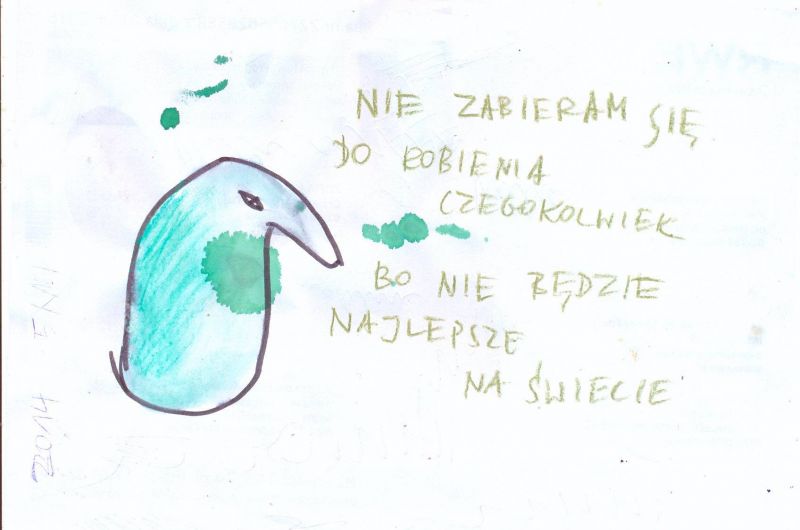 NIE ZABIERAM SIĘ
DO ROBIENIA
CZEGOKOLWIEK
BO NIE BĘDZIE
NAJLEPSZE
NA ŚWIECIE
2014